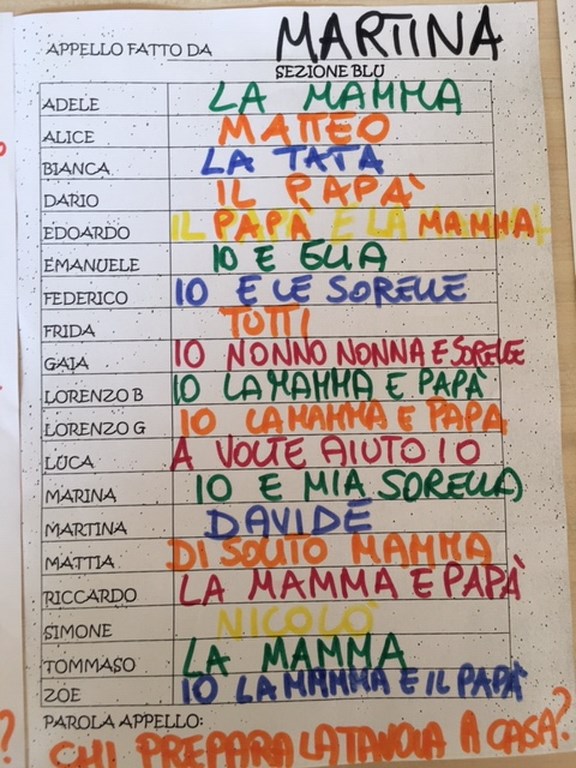 APPELLO FATTO DA MARTINA
SEZIONE BLU
ADELE LA MAMMA
ALICE MATTEO
BIANCA LA TATA
DARIO IL PAPÀ
EDOARDO IL PAPÀ E LA MAMMA
EMANUELE IO E ELIA
FEDERICO IO E LE SORELLE
FRIDA TUTTI
GAIA IO NONNO NONNA E SORELLE
LORENZO B IO LA MAMMA E PAPÀ
LORENZO G IO LA MAMMA E PAPA
LUCA A VOLTE AIUTO IO
MARINA IO E MIA SORELLA
MARTINA DAVIDE
MATTIA DI SOLITO MAMMA
RICCARDO LA MAMMA E PAPÀ
SIMONE NICOLÒ
TOMMASO LA MAMMA
ZOE IO LA MAMMA E IL PAPÀ
PAROLA APPELLO:
CHI PREPARA LA TAVOLA A CASA?